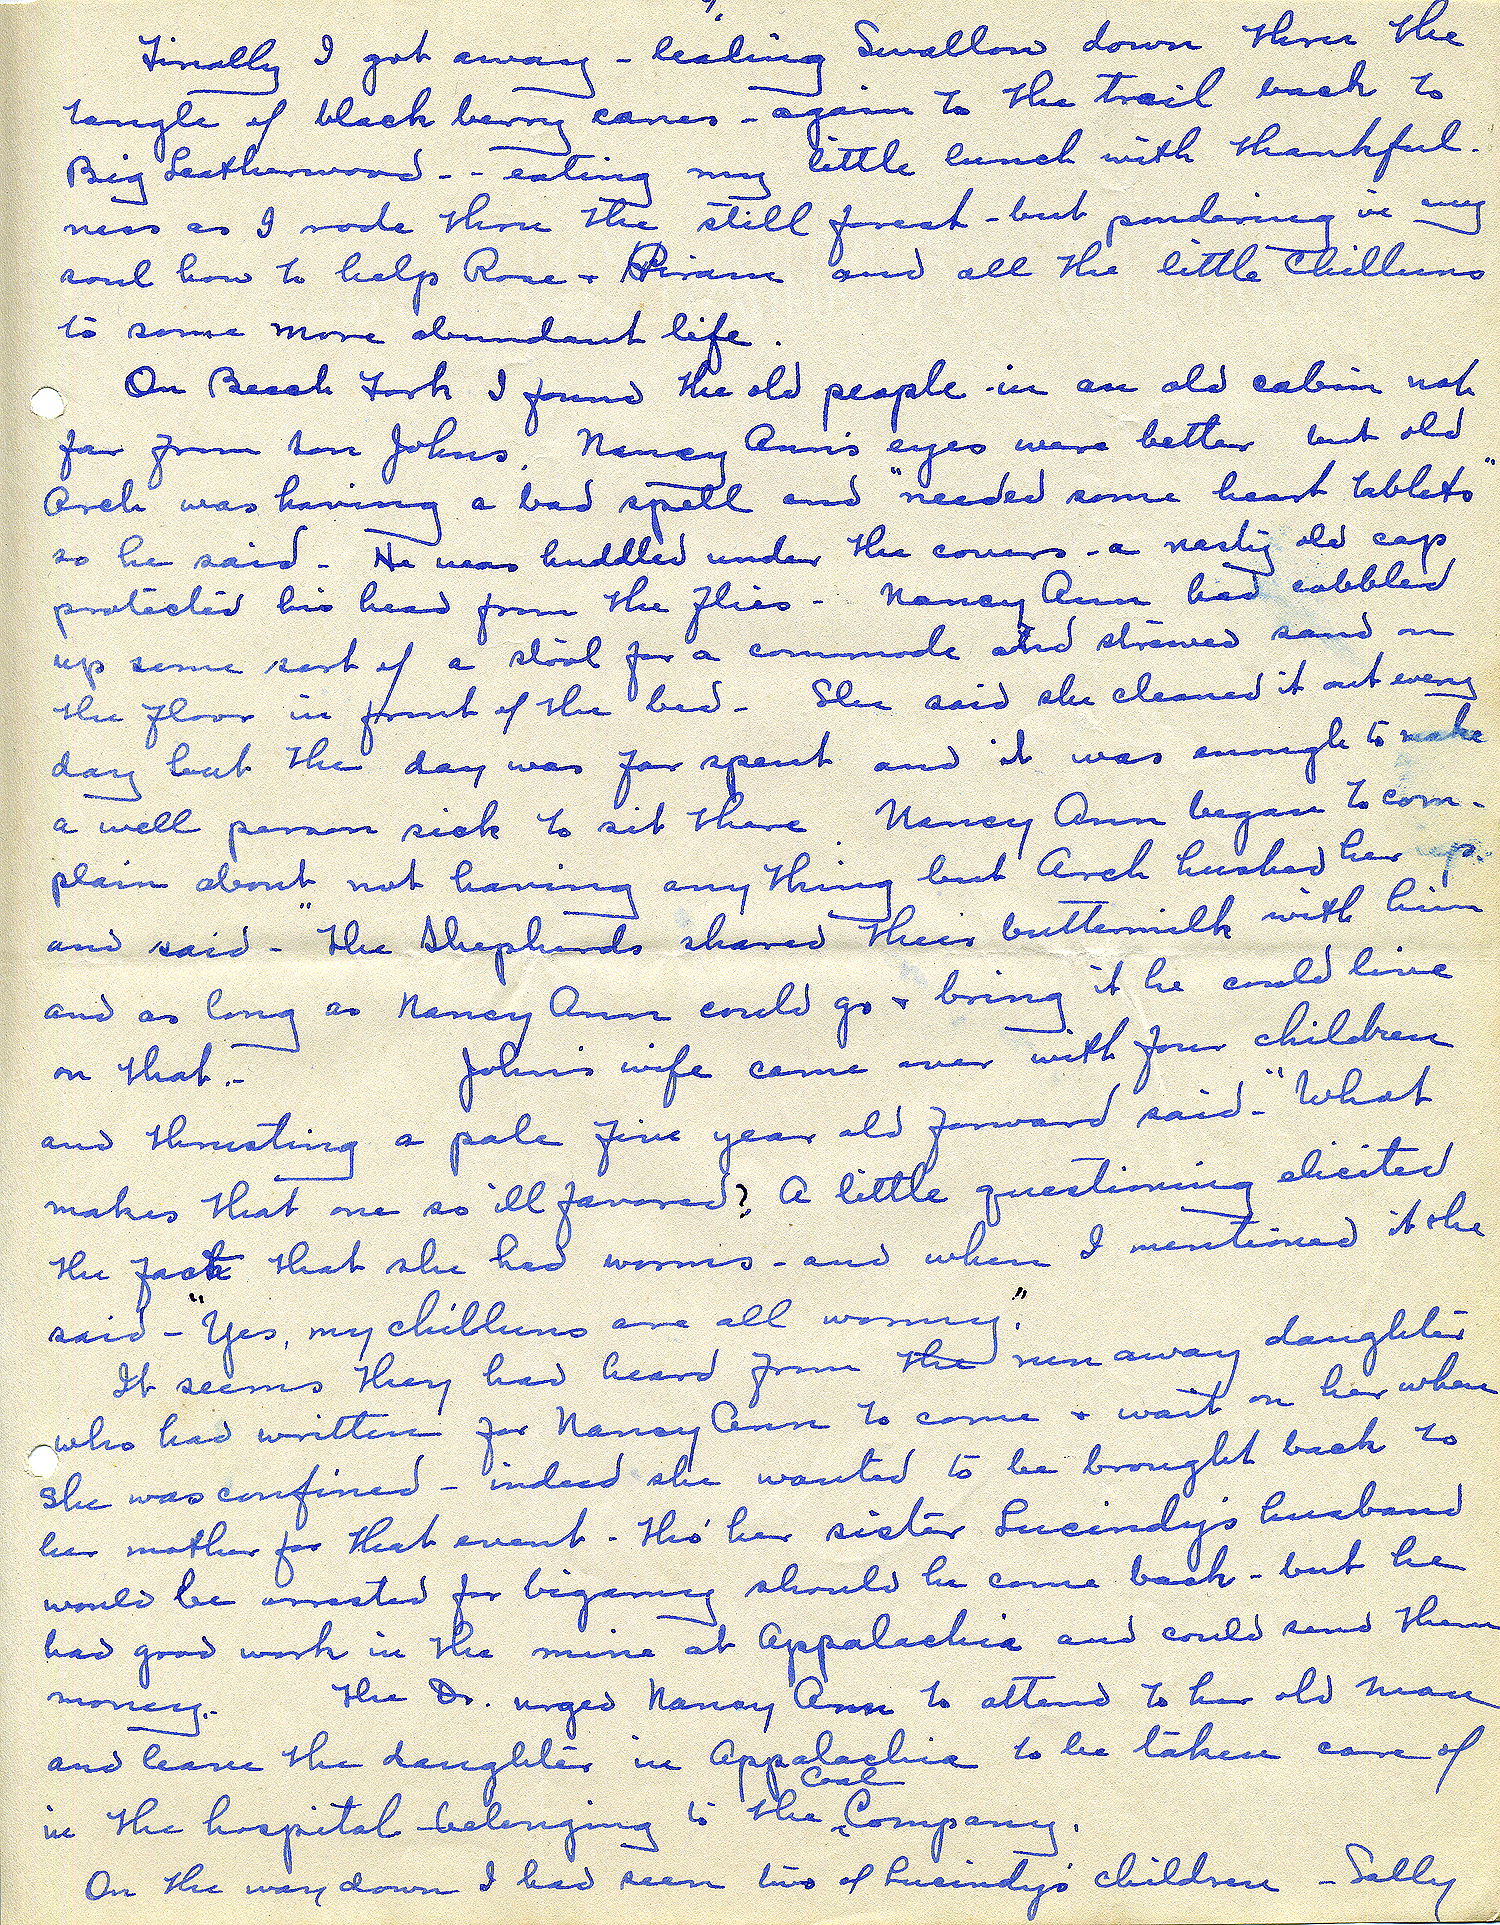 Finally I got away - leading Swallow down thru the
tangle of black berry canes - again to the trail back to
Big Leatherwood - - eating my little lunch with thankful-
ness as I rode thru the still forest - but pondering in my
soul how to help Rose + Hiram and all the little Chilluns
to some more abundant life.
On Beech Fork I found the old people in an old cabin not
far from son Johns. Nancy Ann's eyes were better but old
Arch was having a bad spell and "needed some heart tablets"
so he said - He was huddled under the covers - a nasty old cap
protected his head from the flies - Nancy Ann had cobbled
up some sort of a stool for a commode and strewed sand on
the floor in front of the bed - She said she cleaned it out every
day but the day was far spent and it was enough to make
a well person sick to sit there. Nancy Ann began to com-
plain about not having any thing but Arch hushed her up.
and said - "the Shepherds shared their buttermilk with him
and as long as Nancy Ann could go + bring it he could live
on that. - John's wife came over with four children
and thrusting a pale five year old forward said - "What
makes that one so ill favored? A little questioning elicited
the fact that she had worms - and when I mentioned it she
said - "Yes, my chilluns are all wormy."
It seems they had heard from the run away daughter
who had written for Nancy Ann to come + wait on her when
she was confined - indeed she wanted to be brought back to
her mother for that event - tho' her sister Lucindy's husband
would be arrested for bigamy should he come back - but he
had good work in the mine at Appalachia and could send them
money. - The Dr. urged Nancy Ann to attend to her old man
and leave the daughter in Appalachia to be taken care of
in the hospital belonging to the Coal Company.
On the way down I had seen two of Lucindy's children - Sally